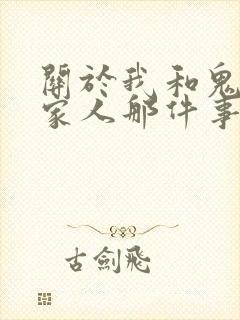 關於我和鬼
家人那件事
古劍飛